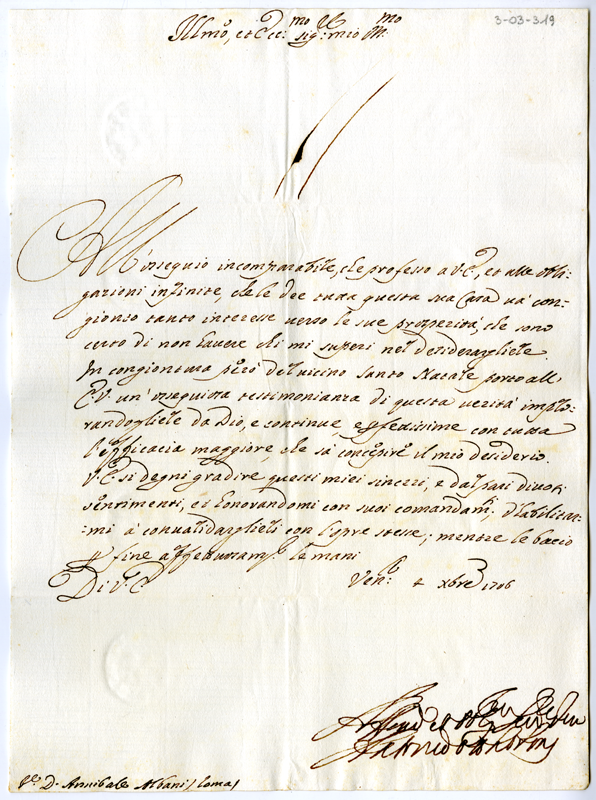 3-03-319
Illmo, et Ecc:mo Sig:r mio Oss:mo
All'ossequio incomparabile, che professo a V.E., et alle obli-
gazioni infinite, che le dee tutta questa sua Casa và con-
gionto tanto interesse verso le sue prosperità, che sono
certo di non havere chi mi superi nel desiderargliele.
In congiontura però del vicino Santo Natale porto all'
E.V. un'ossequiosa testimonianza di questa verità implo-
randogliele da Dio, e continue, e felicissime con tutta
l'efficacia maggiore, che sà concepire il mio desiderio.
V.E. si degni gradire questi miei sinceri, e
sentimenti, et honorandomi con suoi comandam:ti habilitar-
mi à convalidarglieli con l'opre stesse; mentre le bacio
per fine affettuosam:te le mani
Di V.E. Ven:a 4 xbre 1706
S.r D. Annibale Albani / Roma /